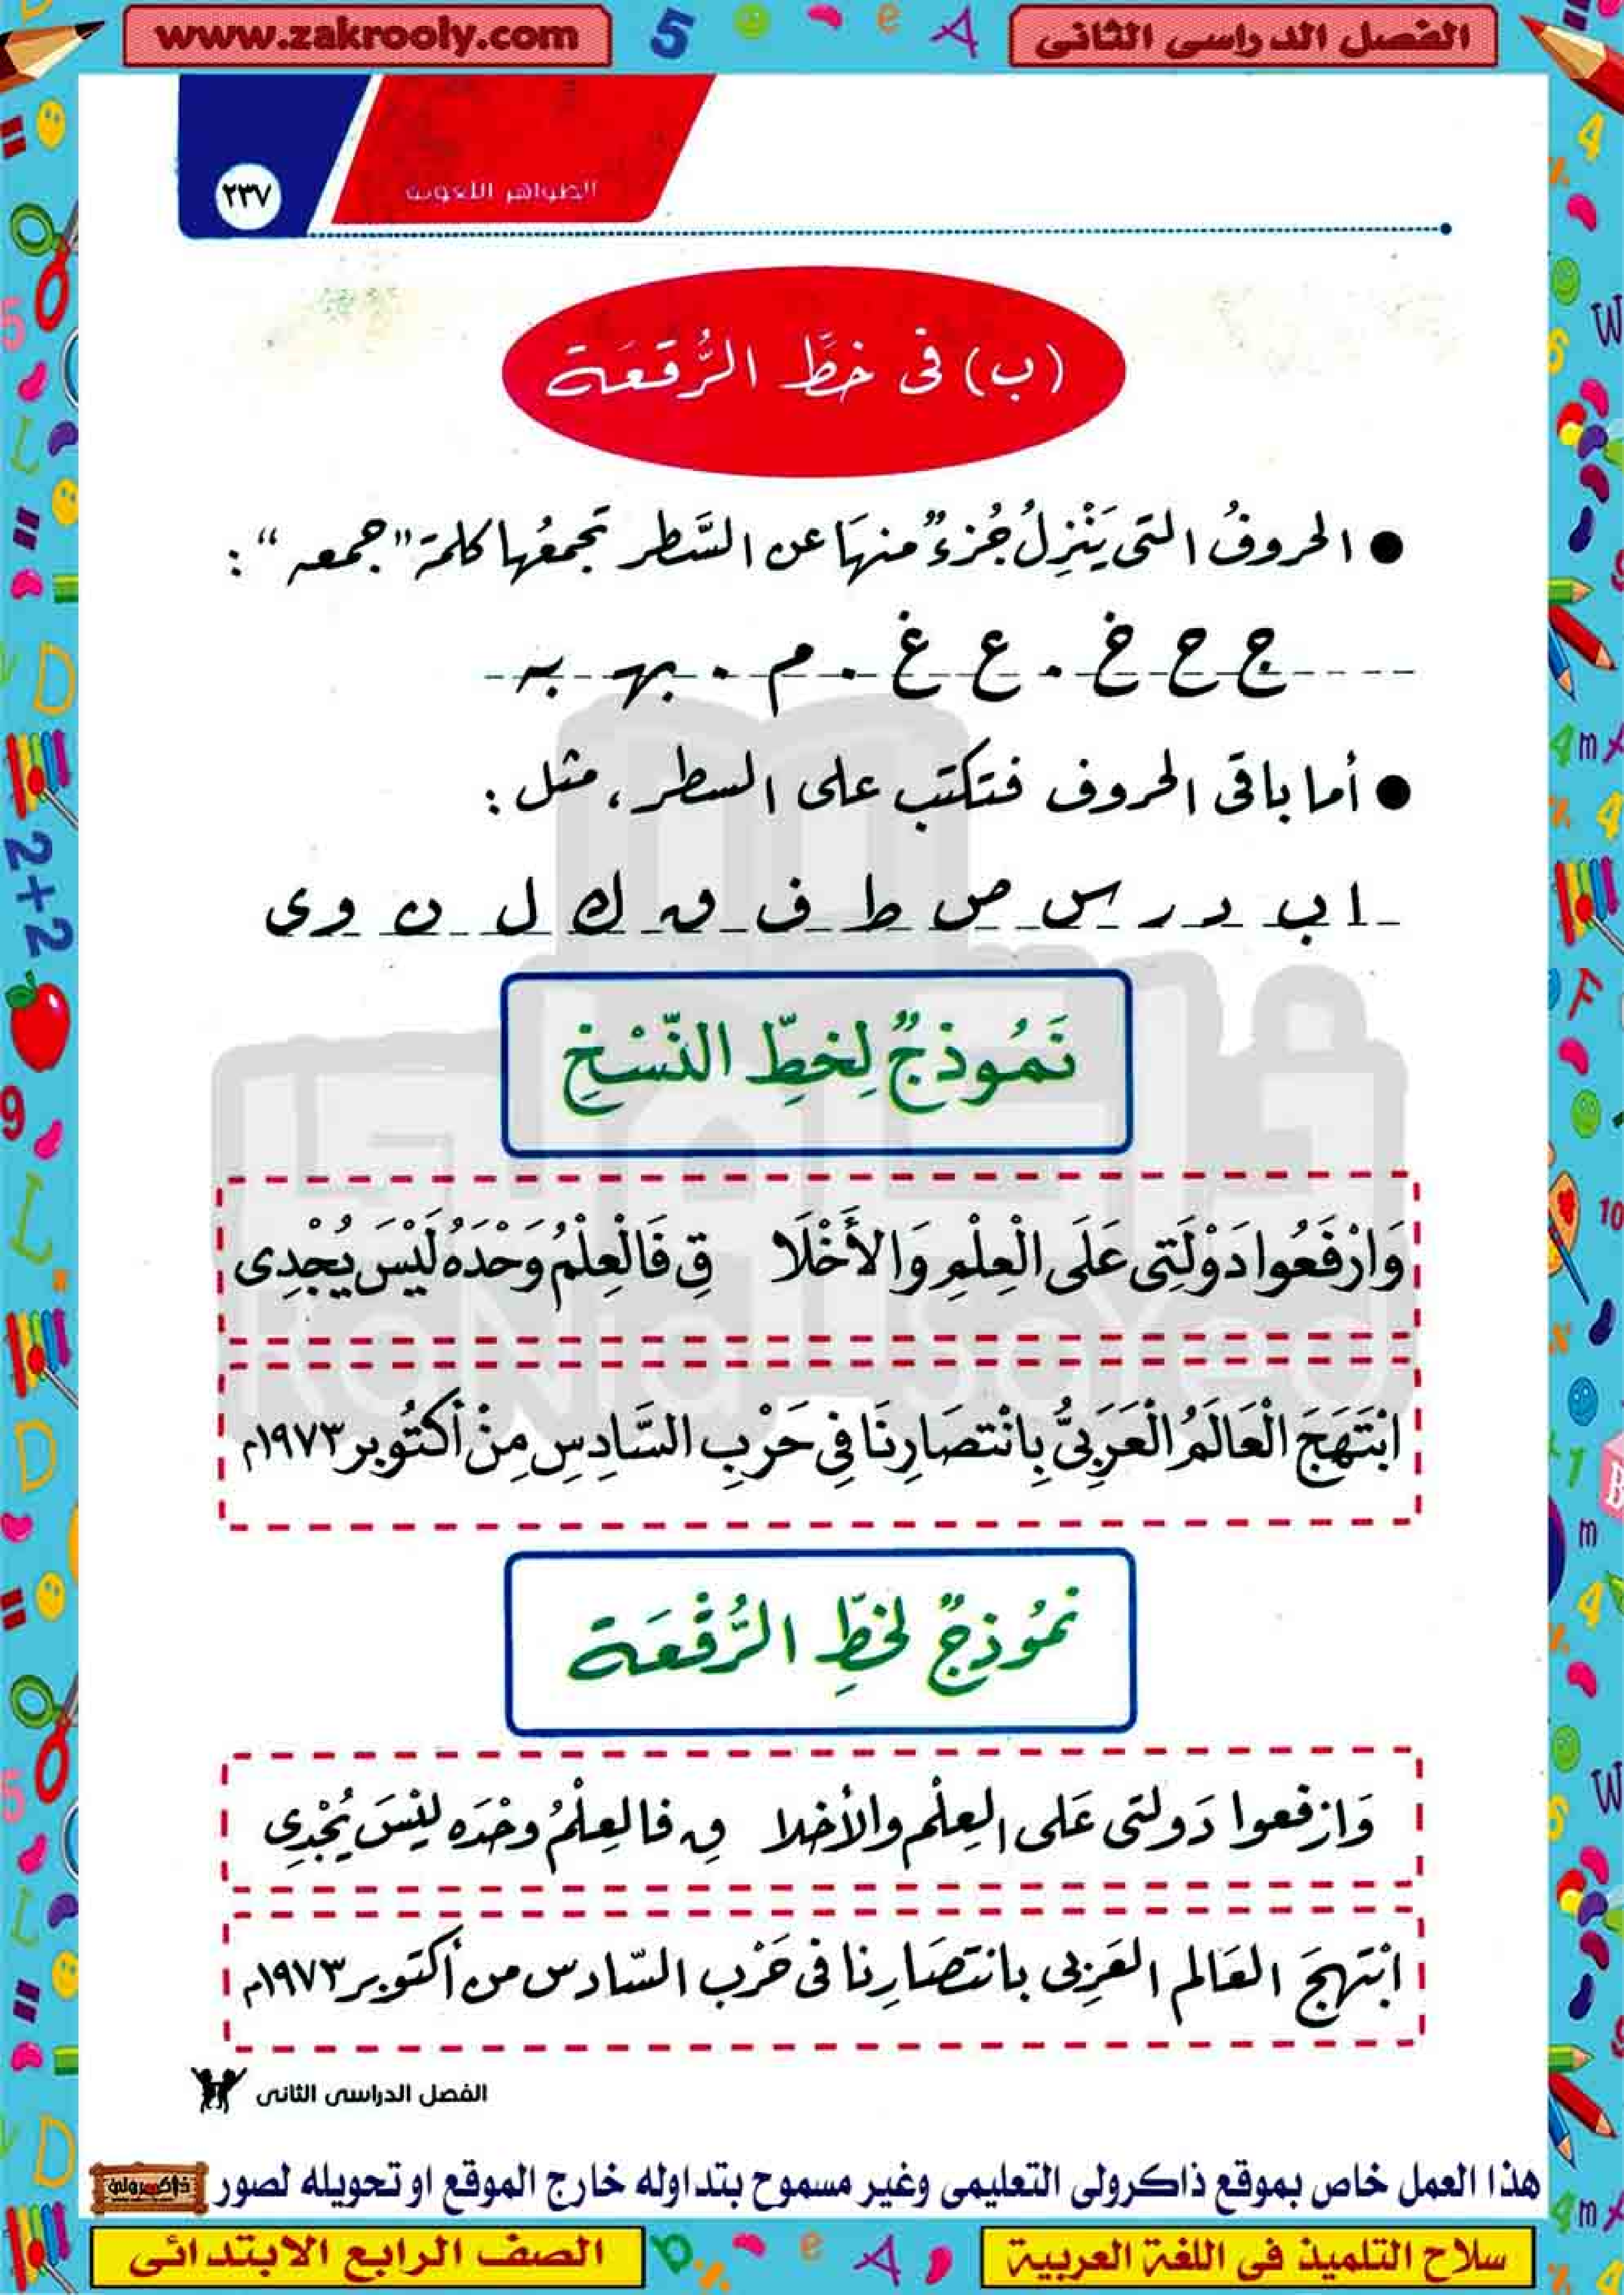 www.zakrooly.com
الفصل الدراسى الثانى
٢٣٧
الظواهر اللغوية
(ب) فى خطِّ الرُّقعَة
● الحروفُ التى يَنْزِلُ جُزءٌ منهَا عن السَّطر تجمعُها كلمة "جمعه" :
ج ح خ . ع غ . م . بهـ به
● أما باقى الحروف فتكتب على السطر ، مثل :
ا ب د ر س ص ط ف ق ك ل ن و ى
نَمُوذجٌ لِخطِّ النّسْخِ
وَارْفَعُوا دَوْلَتِى عَلَى الْعِلْمِ وَالأَخْلَا قِ فَالْعِلْمُ وَحْدَهُ لَيْسَ يُجْدِى
ابْتَهَجَ الْعَالَمُ الْعَرَبِىُّ بِانْتصَارِنَا فِى حَرْبِ السَّادِسِ مِنْ أكتُوبر ١٩٧٣م
نمُوذجٌ لخطِّ الرُّقْعَة
وَارْفعوا دَولتى عَلى العِلْم والأخلا قِ فالعِلْمُ وحْدَه ليْسَ يُجْدِى
ابْتهجَ العَالم العَرَبى بانتصَارِنا فى حَرْب السّادس من أكتوبر ١٩٧٣م
الفصل الدراسى الثانى
هذا العمل خاص بموقع ذاكرولى التعليمى وغير مسموح بتداوله خارج الموقع او تحويله لصور
ذاكرولى
سلاح التلميذ فى اللغة العربية
الصف الرابع الابتدائى